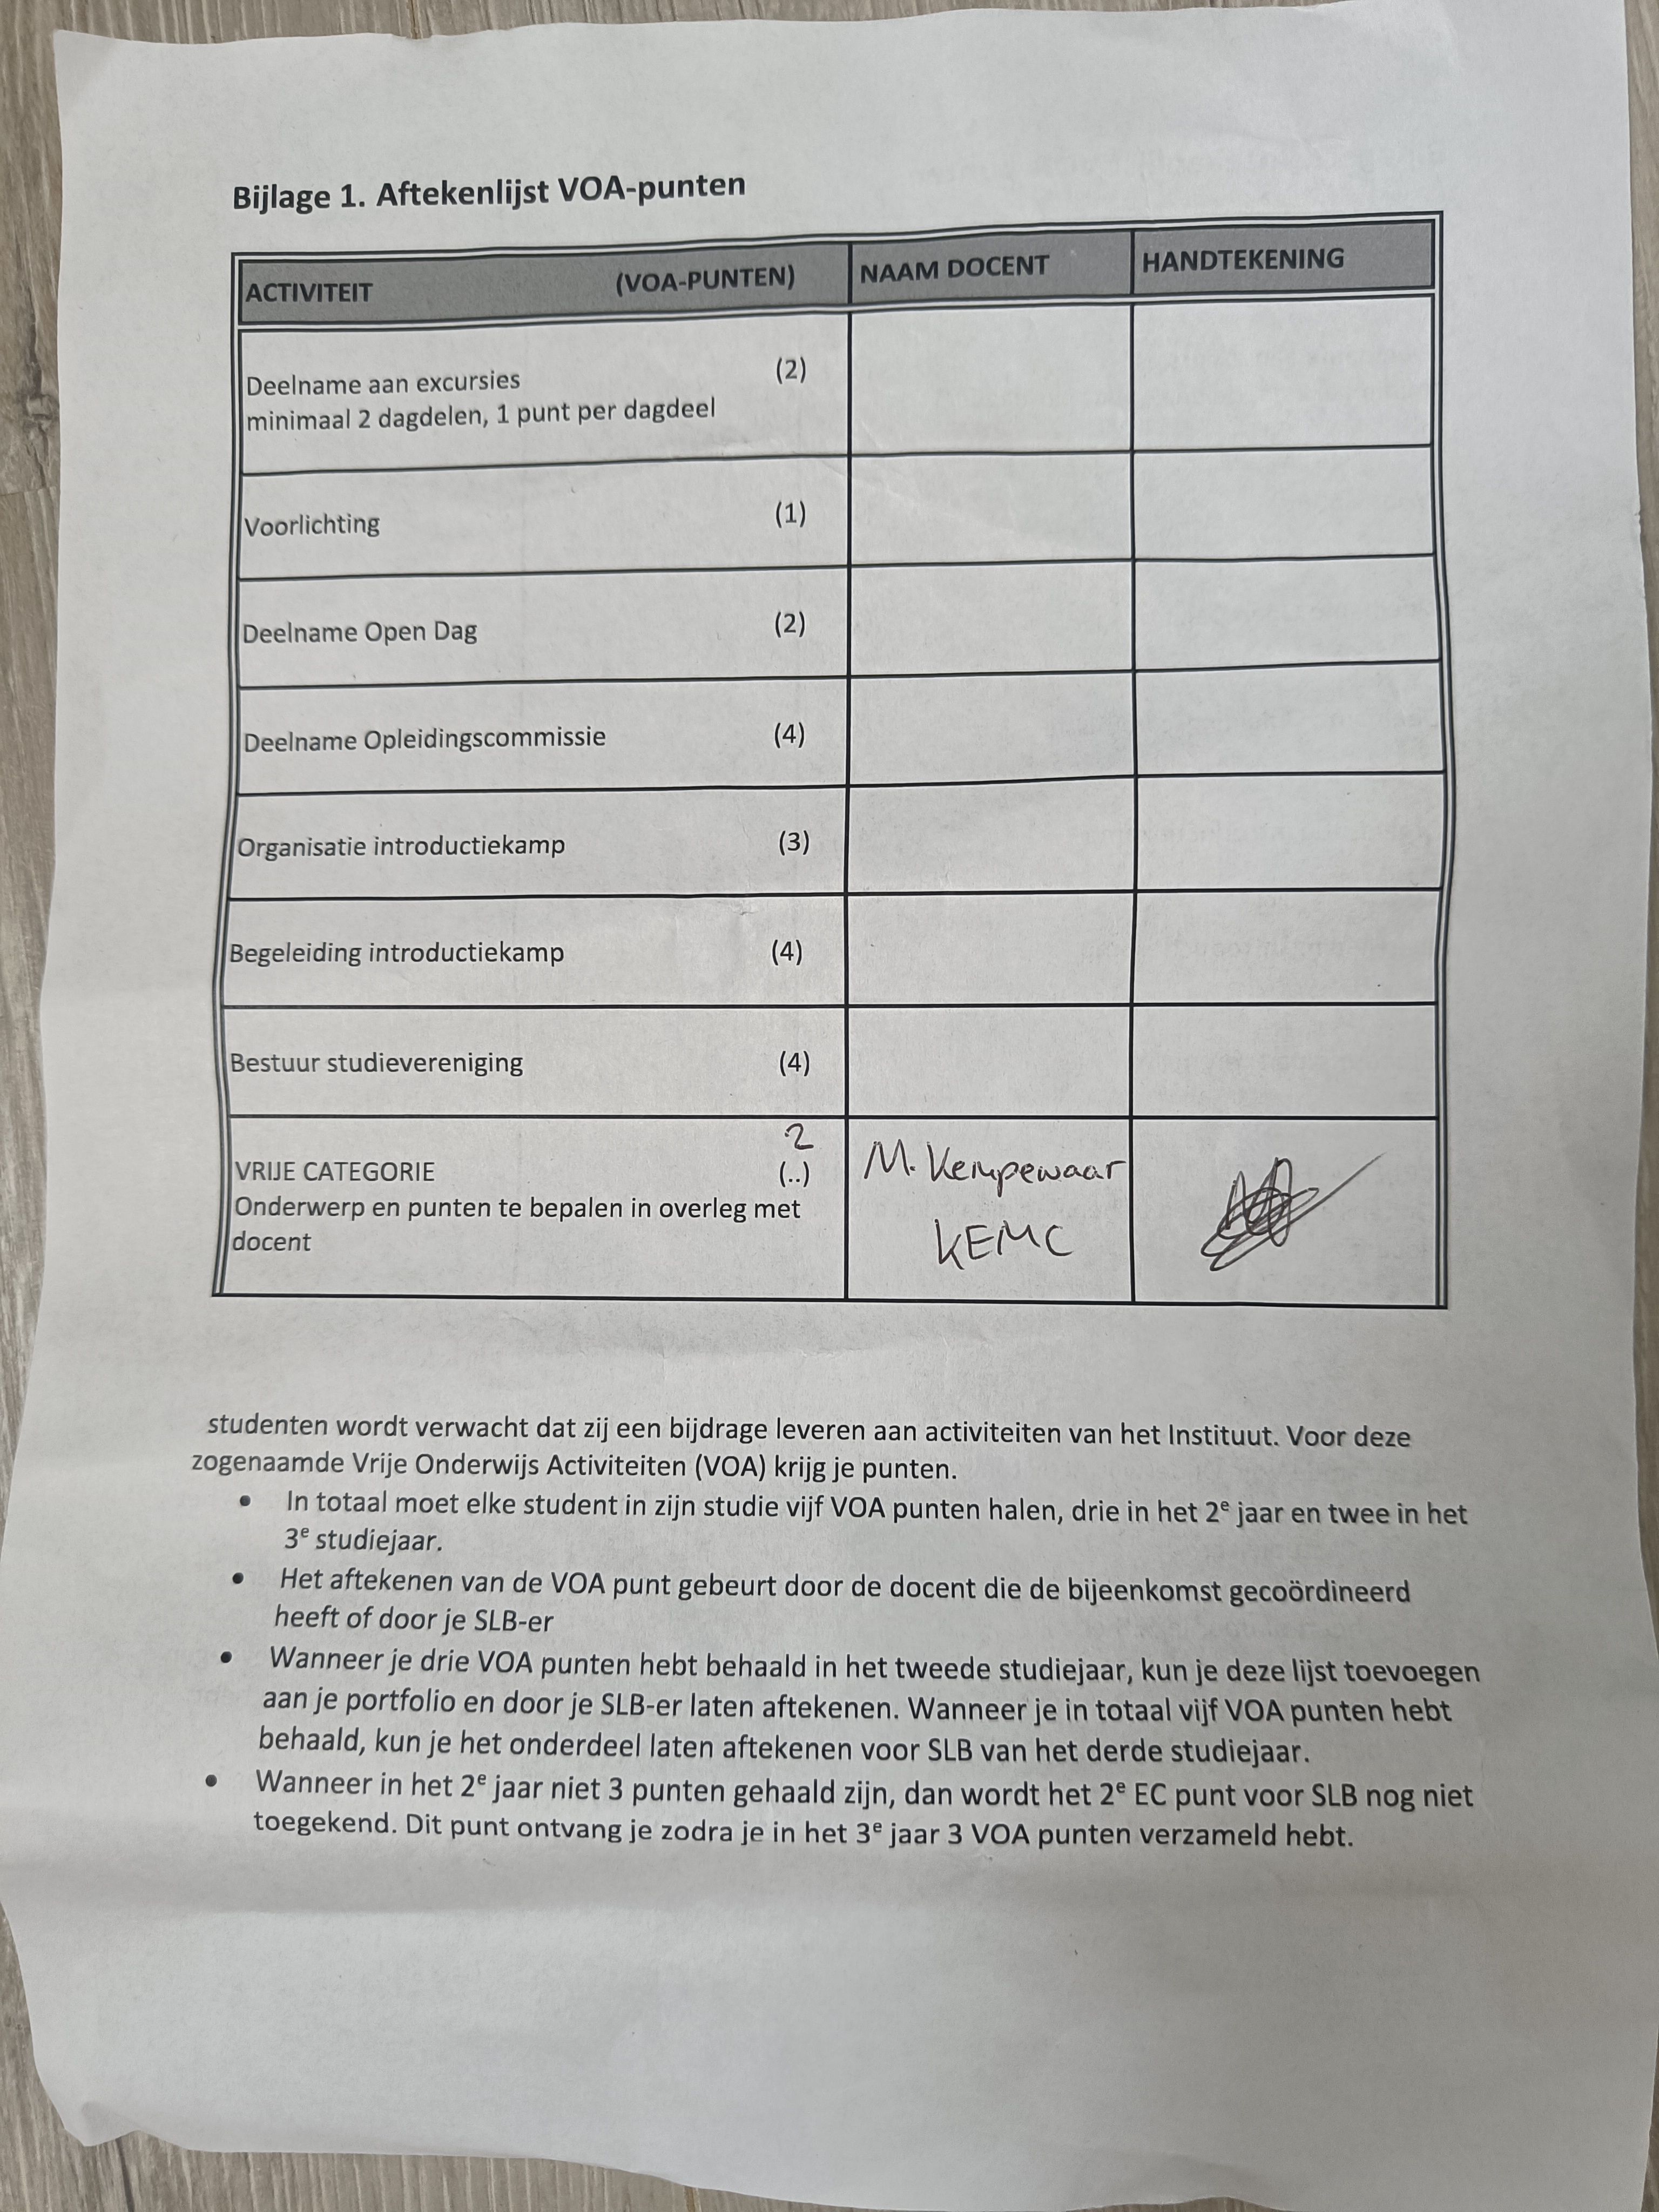 Bijlage 1. Aftekenlijst VOA-punten
ACTIVITEIT (VOA-PUNTEN) NAAM DOCENT HANDTEKENING
Deelname aan excursies (2)
minimaal 2 dagdelen, 1 punt per dagdeel
Voorlichting (1)
Deelname Open Dag (2)
Deelname Opleidingscommissie (4)
Organisatie introductiekamp (3)
Begeleiding introductiekamp (4)
Bestuur studievereniging (4)
2
VRIJE CATEGORIE (..) M. Kempewaar
Onderwerp en punten te bepalen in overleg met
docent KEMC
studenten wordt verwacht dat zij een bijdrage leveren aan activiteiten van het Instituut. Voor deze
zogenaamde Vrije Onderwijs Activiteiten (VOA) krijg je punten.
• In totaal moet elke student in zijn studie vijf VOA punten halen, drie in het 2e jaar en twee in het
3e studiejaar.
• Het aftekenen van de VOA punt gebeurt door de docent die de bijeenkomst gecoördineerd
heeft of door je SLB-er
• Wanneer je drie VOA punten hebt behaald in het tweede studiejaar, kun je deze lijst toevoegen
aan je portfolio en door je SLB-er laten aftekenen. Wanneer je in totaal vijf VOA punten hebt
behaald, kun je het onderdeel laten aftekenen voor SLB van het derde studiejaar.
• Wanneer in het 2e jaar niet 3 punten gehaald zijn, dan wordt het 2e EC punt voor SLB nog niet
toegekend. Dit punt ontvang je zodra je in het 3e jaar 3 VOA punten verzameld hebt.